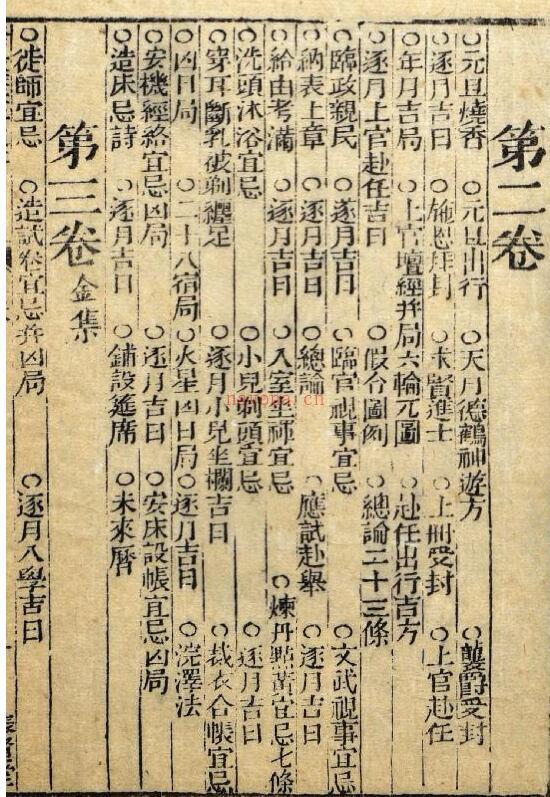 第二卷
○元旦燒香 ○元旦出行 ○天月德鶴神遊方 ○襲爵受封
○逐月吉日 ○施恩拜封 ○求賢進士 ○上冊受封 ○上官赴任
○年月吉局 ○上官壇經并局六輪元圖 ○赴任出行吉方
○逐月上官赴任吉日 ○假令圖例 ○總論二十三條
○臨政親民 ○逐月吉日 ○臨官視事宜忌 ○文武視事宜忌
○納表上章 ○逐月吉日 ○總論 ○應試赴舉 ○逐月吉日
○給由考滿 ○逐月吉日 ○入室坐禪宜忌 ○煉丹點黃宜忌七條
○洗頭沐浴宜忌 ○小兒剃頭宜忌 ○逐月吉日
○穿耳斷乳破剃纏足 ○逐月小兒坐欄吉日 ○裁衣合帳宜忌
○凶日局 ○二十八宿局 ○火星凶日局 ○逐月吉日 ○浣澤法
○安機經絡宜忌凶局 ○逐月吉日 ○安床設帳宜忌凶局
○造床忌詩 ○逐月吉日 ○鋪設筵席 ○未來曆
第三卷 金集
○徒師宜忌 ○造試卷宜忌并凶局 ○逐月入學吉日
nayona.cn